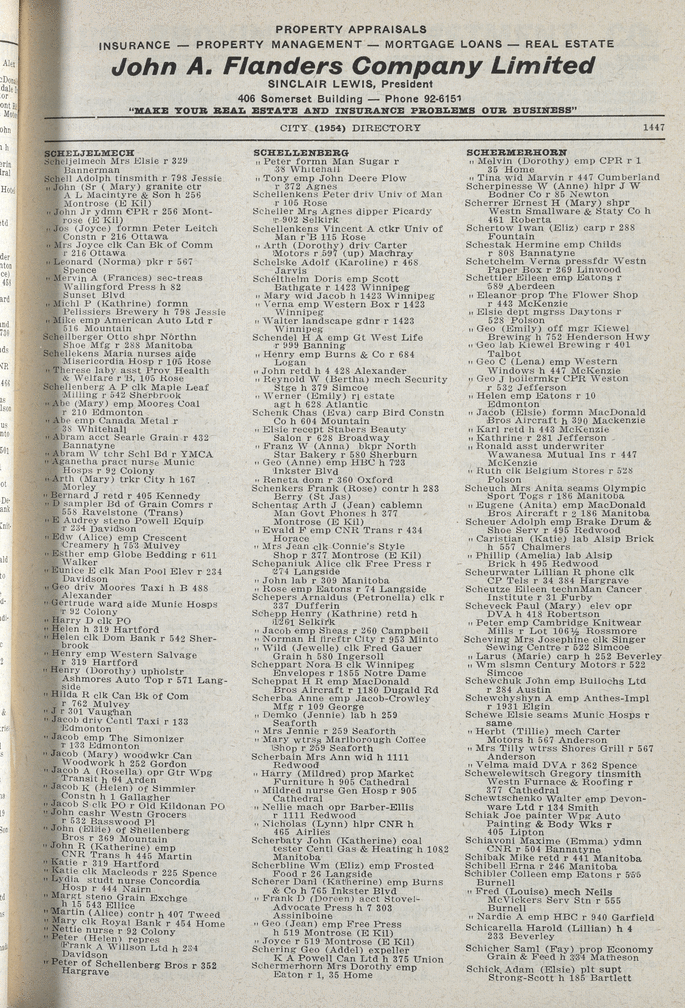 PROPERTY APPRAISALS
INSURANCE — PROPERTY MANAGEMENT — MORTGAGE LOANS — REAL ESTATE
John A. Flanders Company Limited
SINCLAIR LEWIS, President
406 Somerset Building — Phone 92-6151
"MAKE YOUR REAL ESTATE AND INSURANCE PROBLEMS OUR BUSINESS"
CITY (1954) DIRECTORY 1447
SCHELJELMECH
Scheljelmech Mrs Elsie r 329
Bannerman
Schell Adolph tinsmith r 798 Jessie
" John (Sr ( Mary) granite ctr
A L Macintyre & Son h 256
Montrose (E Kil)
" John Jr ydmn CPR r 256 Mont-
rose (E Kil)
" Jos (Joyce) formn Peter Leitch
Constn r 216 Ottawa
" Mrs Joyce clk Can Bk of Comm
r 216 Ottawa
" Leonard (Norma) pkr r 567
Spence
" Mervin A (Frances) sec-treas
Wallingford Press h 82
Sunset Blvd
" Michl P (Kathrine) formn
Pelissiers Brewery h 798 Jessie
" Mike emp American Auto Ltd r
516 Mountain
Schellberger Otto shpr Northn
Shoe Mfg r 288 Manitoba
Schellekens Maria nurses aide
Misericordia Hosp r 105 Rose
" Therese laby asst Prov Health
& Welfare r B, 105 Rose
Schellenberg A P clk Maple Leaf
Milling r 542 Sherbrook
" Abe (Mary) emp Moores Coal
r 210 Edmonton
" Abe emp Canada Metal r
38 Whitehall
" Abram acct Searle Grain r 432
Bannatyne
" Abram W tchr Schl Bd r YMCA
" Aganetha pract nurse Munic
Hosps r 92 Colony
" Arth (Mary) trkr City h 167
Morley
" Bernard J retd r 405 Kennedy
" D sampler Bd of Grain Comrs r
558 Ravelstone (Trans)
" E Audrey steno Powell Equip
r 234 Davidson
" Edw (Alice) emp Crescent
Creamery h 753 Mulvey
" Esther emp Globe Bedding r 611
Walker
" Eunice E clk Man Pool Elev r 234
Davidson
" Geo driv Moores Taxi h B 488
Alexander
" Gertrude ward aide Munic Hosps
r 92 Colony
" Harry D clk PO
" Helen h 319 Hartford
" Helen clk Dom Bank r 542 Sher-
brook
" Henry emp Western Salvage
r 319 Hartford
" Henry (Dorothy) upholstr
Ashmores Auto Top r 571 Lang-
side
" Hilda R clk Can Bk of Com
r 762 Mulvey
" J r 301 Vaughan
" Jacob driv Centl Taxi r 133
Edmonton
" Jacob emp The Simonizer
r 133 Edmonton
" Jacob (Mary) woodwkr Can
Woodwork h 252 Gordon
" Jacob A (Rosella) opr Gtr Wpg
Transit h 64 Arden
" Jacob K (Helen) of Simmler
Constn h 1 Gallagher
" Jacob S clk PO r Old Kildonan PO
" John cashr Westn Grocers
r 532 Basswood Pl
" John (Elsie) of Shellenberg
Bros r 369 Mountain
" John R (Katherine) emp
CNR Trans h 445 Martin
" Katie r 319 Hartford
" Katie clk Macleods r 225 Spence
" Lydia studt nurse Concordia
Hosp r 444 Nairn
" Margt steno Grain Exchge
h 15 543 Ellice
" Martin (Alice) contr h 407 Tweed
" Mary clk Royal Bank r 454 Home
" Nettie nurse r 92 Colony
" Peter (Helen) repres
Frank A Willson Ltd h 234
Davidson
" Peter of Schellenberg Bros r 352
Hargrave
SCHELLENBERG
" Peter formn Man Sugar r
38 Whitehall
" Tony emp John Deere Plow
r 372 Agnes
Schellenkens Peter driv Univ of Man
r 105 Rose
Scheller Mrs Agnes dipper Picardy
r 902 Selkirk
Schellenkens Vincent A ctkr Univ of
Man r B 115 Rose
" Arth (Dorothy) driv Carter
Motors r 597 (up) Machray
Schelske Adolf (Karoline) r 468
Jarvis
Schelthelm Doris emp Scott
Bathgate r 1423 Winnipeg
" Mary wid Jacob h 1423 Winnipeg
" Verna emp Western Box r 1423
Winnipeg
" Walter landscape gdnr r 1423
Winnipeg
Schendel H A emp Gt West Life
r 999 Banning
" Henry emp Burns & Co r 684
Logan
" John retd h 4 428 Alexander
" Reynold W (Bertha) mech Security
Stge h 379 Simcoe
" Werner (Emily) rl estate
agt h 628 Atlantic
Schenk Chas (Eva) carp Bird Constn
Co h 604 Mountain
" Elsie recept Stabers Beauty
Salon r 628 Broadway
" Franz W (Anna) bkpr North
Star Bakery r 580 Sherburn
" Geo (Anne) emp HBC h 723
Inkster Blvd
" Reneta dom r 360 Oxford
Schenkers Frank (Rose) contr h 283
Berry (St Jas)
Schentag Arth J (Jean) cablemn
Man Govt Phones h 377
Montrose (E Kil)
" Ewald F emp CNR Trans r 434
Horace
" Mrs Jean clk Connie's Style
Shop r 377 Montrose (E Kil)
Schepaniuk Alice clk Free Press r
274 Langside
" John lab r 309 Manitoba
" Rose emp Eatons r 74 Langside
Schepers Arnaldus (Petronella) clk r
337 Dufferin
Schepp Henry (Kathrine) retd h
1261 Selkirk
" Jacob emp Sheas r 260 Campbell
" Norman H fireftr City r 953 Minto
" Wild (Jewelle) clk Fred Gauer
Grain h 580 Ingersoll
Scheppart Nora B clk Winnipeg
Envelopes r 1855 Notre Dame
Scheppat H R emp MacDonald
Bros Aircraft r 1180 Dugald Rd
Scherba Anne emp Jacob-Crowley
Mfg r 109 George
" Demko (Jennie) lab h 259
Seaforth
" Mrs Jennie r 259 Seaforth
" Mary wtrss Marlborough Coffee
Shop r 259 Seaforth
Scherbain Mrs Ann wid h 1111
Redwood
" Harry (Mildred) prop Market
Furniture h 905 Cathedral
" Mildred nurse Gen Hosp r 905
Cathedral
" Nellie mach opr Barber-Ellis
r 1111 Redwood
" Nicholas (Lynn) hlpr CNR h
465 Airlies
Scherbaty John (Katherine) coal
tester Centl Gas & Heating h 1082
Manitoba
Scherbline Wm (Eliz) emp Frosted
Food r 26 Langside
Scherer Danl (Katherine) emp Burns
& Co h 765 Inkster Blvd
" Frank D (Doreen) acct Stovel-
Advocate Press h 7 303
Assiniboine
" Geo (Jean) emp Free Press
h 519 Montrose (E Kil)
" Joyce r 519 Montrose (E Kil)
Schering Geo (Addel) expeller
K A Powell Can Ltd h 375 Union
Schermerhorn Mrs Dorothy emp
Eaton r 1, 35 Home
SCHERMERHORN
" Melvin (Dorothy) emp CPR r 1
35 Home
" Tina wid Marvin r 447 Cumberland
Scherpinesse W (Anne) hlpr J W
Bodner Co r 85 Newton
Scherrer Ernest H (Mary) shpr
Westn Smallware & Staty Co h
461 Roberta
Schertow Iwan (Eliz) carp r 288
Fountain
Schestak Hermine emp Childs
r 808 Bannatyne
Schetchelm Verna pressfdr Westn
Paper Box r 269 Linwood
Schettler Eileen emp Eatons r
589 Aberdeen
" Eleanor prop The Flower Shop
r 443 McKenzie
" Elsie dept mgrss Daytons r
528 Polson
" Geo (Emily) off mgr Kiewel
Brewing h 752 Henderson Hwy
" Geo lab Kiewel Brewing r 401
Talbot
" Geo C (Lena) emp Western
Windows h 447 McKenzie
" Geo J boilermkr CPR Weston
r 532 Jefferson
" Helen emp Eatons r 10
Edmonton
" Jacob (Elsie) formn MacDonald
Bros Aircraft h 390 Mackenzie
" Karl retd h 443 McKenzie
" Kathrine r 281 Jefferson
" Ronald asst underwriter
Wawanesa Mutual Ins r 447
McKenzie
" Ruth clk Belgium Stores r 528
Polson
Scheuch Mrs Anita seams Olympic
Sport Togs r 186 Manitoba
" Eugene (Anita) emp MacDonald
Bros Aircraft r 2 186 Manitoba
Scheuer Adolph emp Brake Drum &
Shoe Serv r 495 Redwood
" Caristian (Katie) lab Alsip Brick
h 557 Chalmers
" Phillip (Amelia) lab Alsip
Brick h 495 Redwood
Scheurwater Lillian R phone clk
CP Tels r 34 384 Hargrave
Scheutze Eileen technMan Cancer
Institute r 31 Furby
Scheveck Paul (Mary) elev opr
DVA h 418 Robertson
" Peter emp Cambridge Knitwear
Mills r Lot 106½ Rossmore
Scheving Mrs Josephine clk Singer
Sewing Centre r 522 Simcoe
" Larus (Marie) carp h 252 Beverley
" Wm slsmn Century Motors r 522
Simcoe
Schewchuk John emp Bullochs Ltd
r 284 Austin
Schewchyshyn A emp Anthes-Impl
r 1931 Elgin
Schewe Elsie seams Munic Hosps r
same
" Herbt (Tillie) mech Carter
Motors h 567 Anderson
" Mrs Tilly wtrss Shores Grill r 567
Anderson
" Velma maid DVA r 362 Spence
Schewelewitsch Gregory tinsmith
Westn Furnace & Roofing r
377 Cathedral
Schewtschenko Walter emp Devon-
ware Ltd r 134 Smith
Schiak Joe painter Wpg Auto
Painting & Body Wks r
405 Lipton
Schiavoni Maxime (Emma) ydmn
CNR r 504 Bannatyne
Schibak Mike retd r 441 Manitoba
Schibell Erna r 246 Manitoba
Schibler Colleen emp Eatons r 555
Burnell
" Fred (Louise) mech Neils
McVickers Serv Stn r 555
Burnell
" Nardie A emp HBC r 940 Garfield
Schicarella Harold (Lillian) h 4
233 Beverley
Schicher Saml (Fay) prop Economy
Grain & Feed h 334 Matheson
Schick Adam (Elsie) plt supt
Strong-Scott h 185 Bartlett